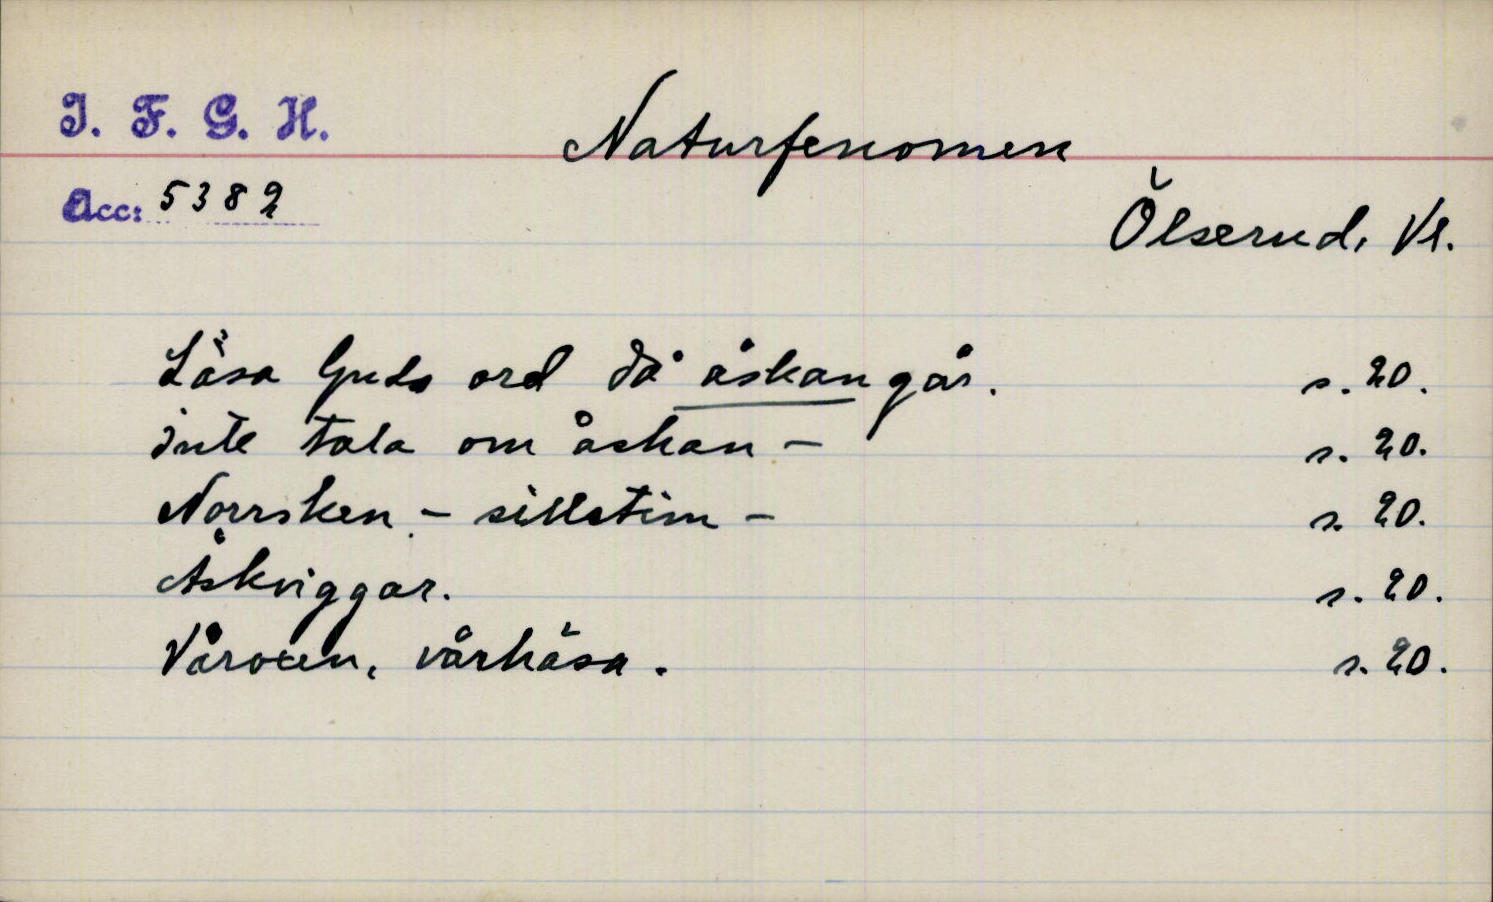 I. F. G. H.
Naturfenomen
Acc: 5382
Ölserud, Vl.
Läsa Guds ord då åskan går. s. 20.
inte tala om åskan – s. 20.
Norrsken – sillstim – s. 20.
Åskviggar. s. 20.
Våroxen, vårhäsa. s. 20.